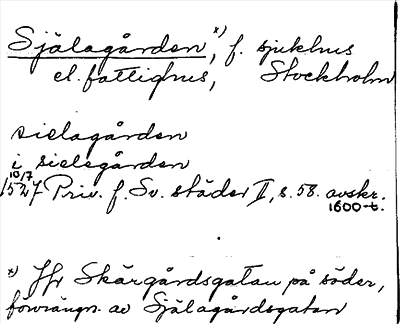 Själagården, x) f. sjukhus
el. fattighus, Stockholm
sielagården
i sielegården
10/7
1527 Priv. f. Sv. städer II, s. 58. avskr.
1600-t.
x) Jfr Skärgårdsgatan på söder,
förvrängn. av Själagårdsgatan